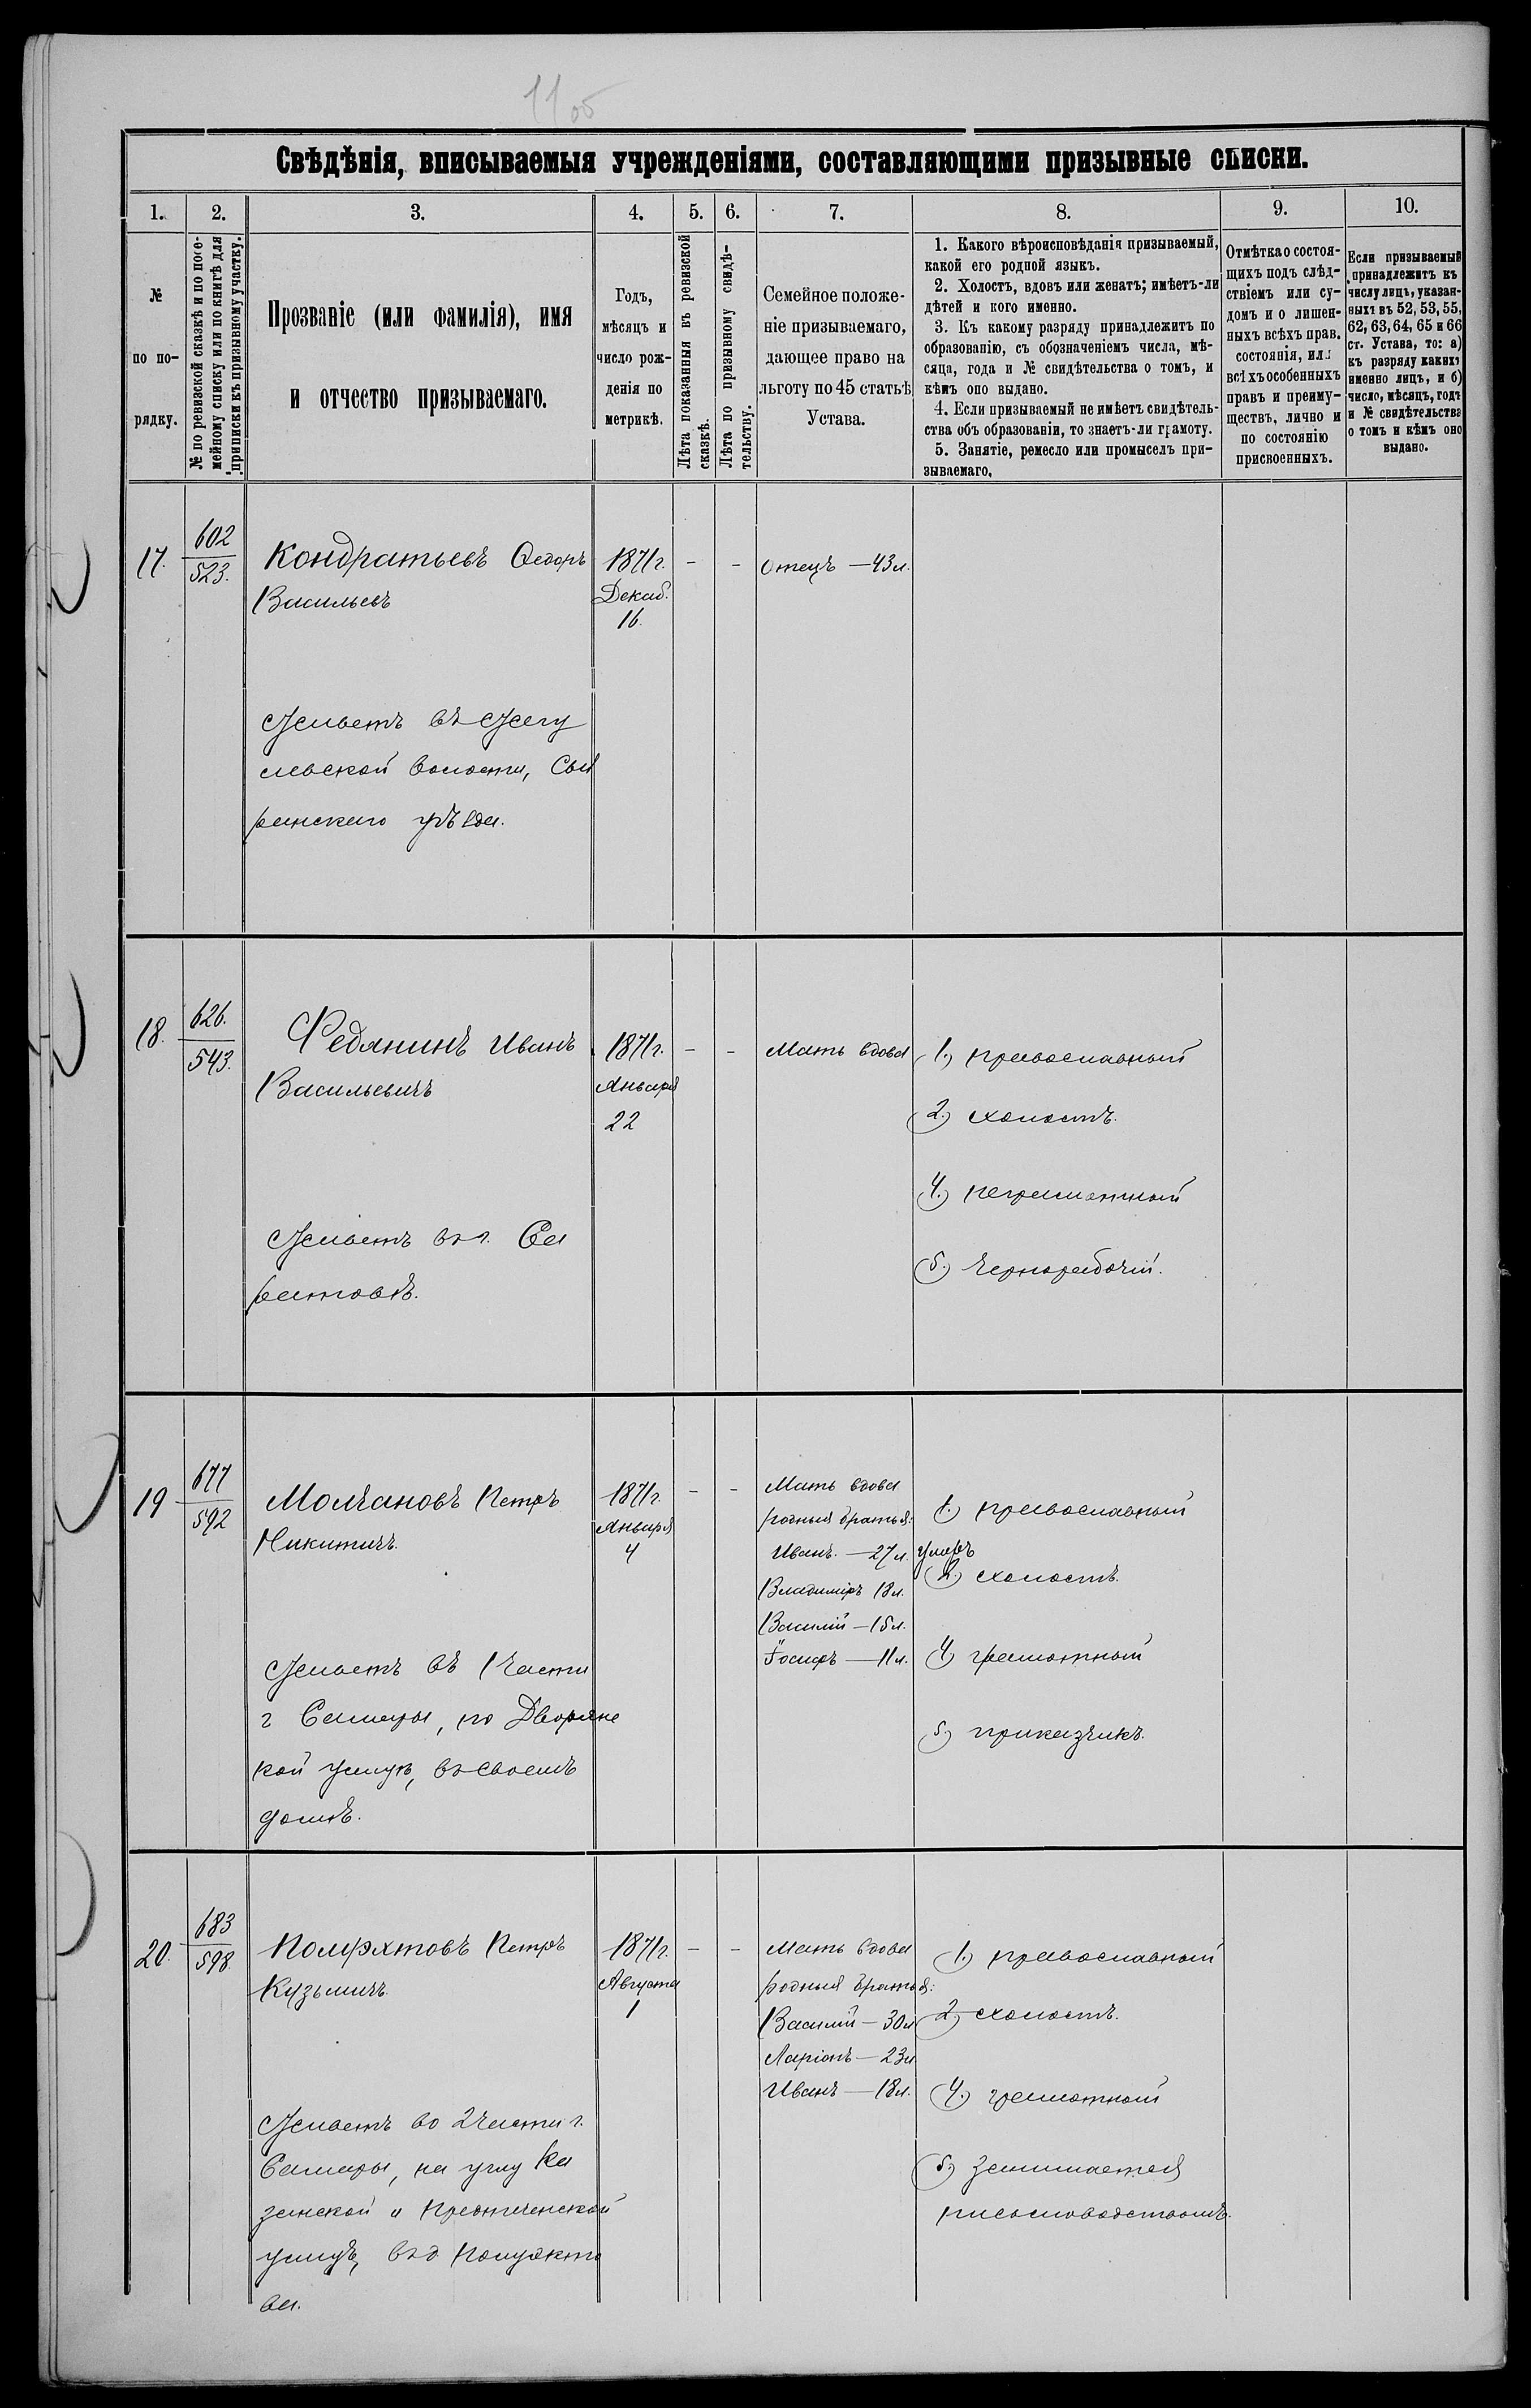 11 об
Свѣдѣнія, вписываемыя учрежденіями, составляющими призывные списки.
1. 2. 3. 4. 5. 6. 7. 8. 9. 10.
№
по по-
рядку.
№ по ревизской сказкѣ и по посе-
мейному списку или по книгѣ для
приписки къ призывному участку.
Прозваніе (или фамилія), имя
и отчество призываемаго.
Годъ,
мѣсяцъ и
число рож-
денія по
метрикѣ.
Лѣта показанныя въ ревизской
сказкѣ.
Лѣта по призывному свидѣ-
тельству.
Семейное положе-
ніе призываемаго,
дающее право на
льготу по 45 статьѣ
Устава.
1. Какого вѣроисповѣданія призываемый,
какой его родной языкъ.
2. Холостъ, вдовъ или женатъ; имѣетъ-ли
дѣтей и кого именно.
3. Къ какому разряду принадлежитъ по
образованію, съ обозначеніемъ числа, мѣ-
сяца, года и № свидѣтельства о томъ, и
кѣмъ оно выдано.
4. Если призываемый не имѣетъ свидѣтель-
ства объ образованіи, то знаетъ-ли грамоту.
5. Занятіе, ремесло или промыселъ при-
зываемаго.
Отмѣтка о состоя-
щихъ подъ слѣд-
ствіемъ или су-
домъ и о лишен-
ныхъ всѣхъ прав.
состоянія, или
всѣхъ особенныхъ
правъ и преиму-
ществъ, лично и
по состоянію
присвоенныхъ.
Если призываемый
принадлежитъ къ
числу лицъ, указан-
ныхъ въ 52, 53, 55,
62, 63, 64, 65 и 66
ст. Устава, то: а)
къ разряду какихъ
именно лицъ, и б)
число, мѣсяцъ, годъ
и № свидѣтельства
о томъ и кѣмъ оно
выдано.
17. 602
523. Кондратьевъ Ѳедоръ 1871 г. - - Отецъ — 43 л.
Васильевъ Декаб.
16.
Живетъ въ Жегу
левской волости, Сыз
ранскаго уѣзда.
18. 626.
543. Федянинъ Иванъ 1871 г. - - Мать вдова 1.) православный
Васильевичъ Января
22
2.) холостъ.
4.) неграмотный
Живетъ въ г. Са
ратовѣ.
5.) Чернорабочій.
19 677
592 Молчановъ Петръ 1871 г. - - Мать вдова
Никитичъ. Января
4
родныя братья:
Иванъ. — 27 л. умеръ
Владиміръ 18 л.
Василій — 15 л.
Іосифъ — 11 л.
1.) православный
2.) холостъ.
4) грамотный
5.) приказчикъ.
Живетъ въ 1 части
г Самары, по Дворянс
кой улицѣ, въ своемъ
домѣ.
20. 683
598 Полуэхтовъ Петръ 1871 г. - - Мать вдова
Кузьмичъ. Августа
1
родныя братья:
Василій — 30 л
Ларіонъ — 23 л
Иванъ — 18 л.
1.) православный
2.) холостъ.
4.) грамотный
5.) занимается
письмоводствомъ.
Живетъ во 2 части г.
Самары, на углу Ка
занской и Предтеченской
улицъ, въ д Полуэкто
ва.